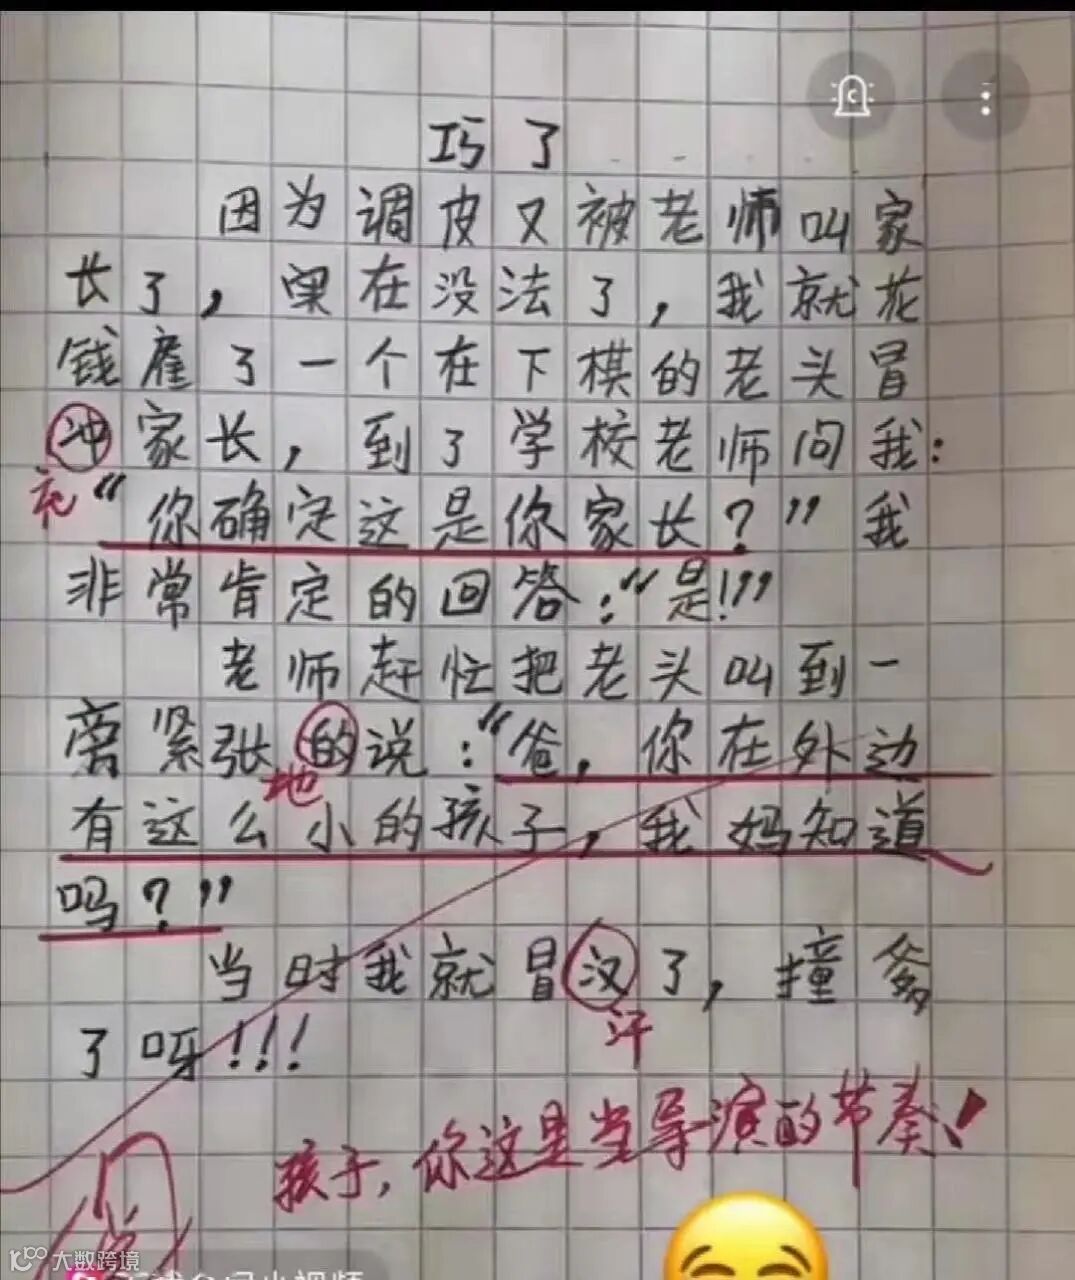 巧了
因为调皮又被老师叫家
长了，实在没法了，我就花
钱雇了一个在下棋的老头冒
冲家长，到了学校老师问我：
充
“你确定这是你家长？”我
非常肯定的回答：“是！”
老师赶忙把老头叫到一
旁紧张的说：“爸，你在外边
地
有这么小的孩子，我妈知道
吗？”
当时我就冒汉了，撞爹
汗
了呀!!!
孩子，你这是当导演的节奏！
大数跨境